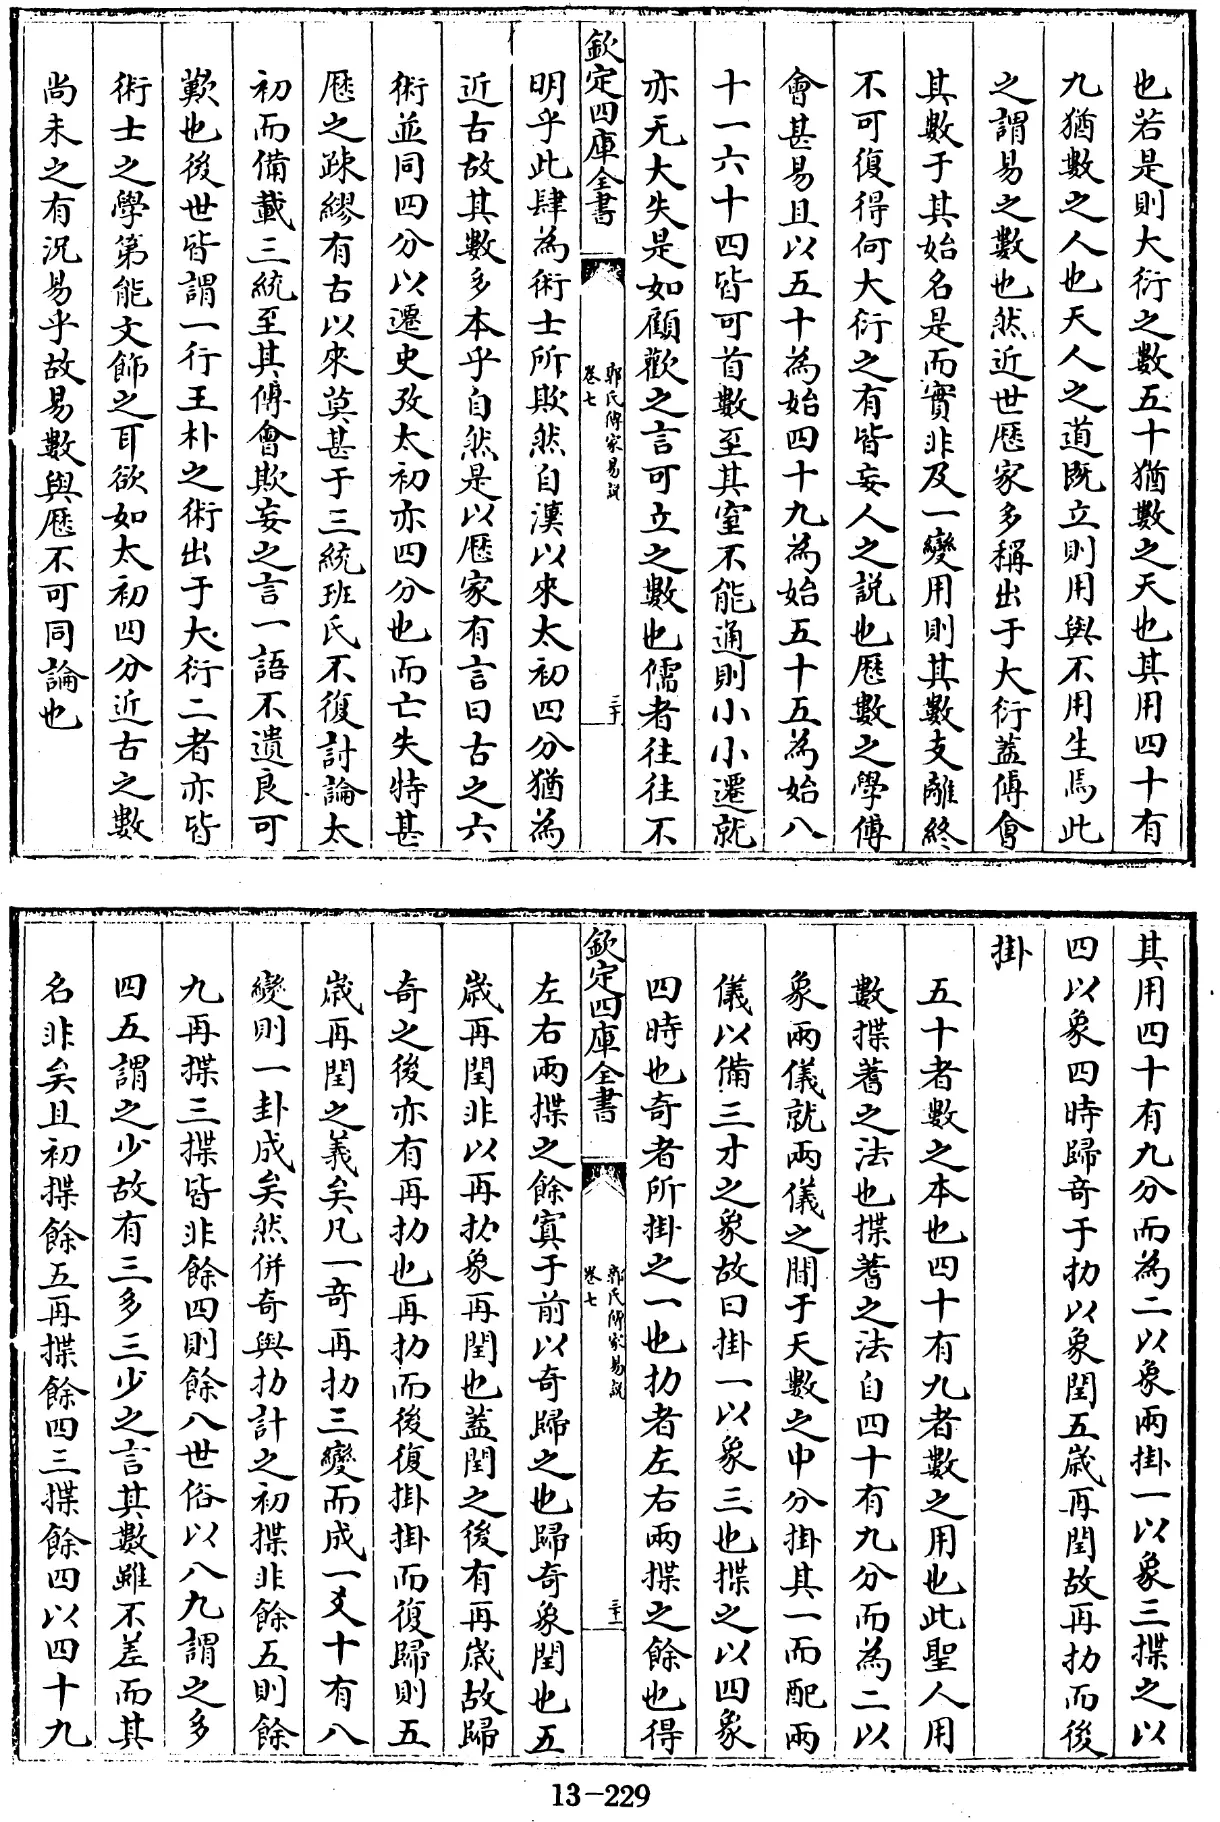 也若是則大衍之數五十猶數之天也其用四十有
九猶數之人也天人之道既立則用與不用生焉此
之謂易之數也然近世歴家多稱出于大衍蓋傅會
其數于其始名是而實非及一變用則其數支離終
不可復得何大衍之有皆妄人之説也歴數之學傅
會甚易且以五十為始四十九為始五十五為始八
十一六十四皆可首數至其窒不能通則小小遷就
亦无大失是如顧歡之言可立之數也儒者往往不
欽定四庫全書
郭氏傳家易説
卷七
三十
明乎此肆為術士所欺然自漢以來太初四分猶為
近古故其數多本乎自然是以歴家有言曰古之六
術並同四分以遷史攷太初亦四分也而亡失特甚
歴之疎繆有古以來莫甚于三統班氏不復討論太
初而備載三統至其傅會欺妄之言一語不遺良可
歎也後世皆謂一行王朴之術出于大衍二者亦皆
術士之學第能文飾之耳欲如太初四分近古之數
尚未之有況易乎故易數與歴不可同論也
其用四十有九分而為二以象兩掛一以象三揲之以
四以象四時歸奇于扐以象閏五歲再閏故再扐而後
掛
五十者數之本也四十有九者數之用也此聖人用
數揲蓍之法也揲蓍之法自四十有九分而為二以
象兩儀就兩儀之間于天數之中分掛其一而配兩
儀以備三才之象故曰掛一以象三也揲之以四象
四時也奇者所掛之一也扐者左右兩揲之餘也得
欽定四庫全書
郭氏傳家易説
卷七
三十一
左右兩揲之餘寘于前以奇歸之也歸奇象閏也五
歲再閏非以再扐象再閏也蓋閏之後有再歲故歸
奇之後亦有再扐也再扐而後復掛掛而復歸則五
歲再閏之義矣凡一奇再扐三變而成一爻十有八
變則一卦成矣然併奇與扐計之初揲非餘五則餘
九再揲三揲皆非餘四則餘八世俗以八九謂之多
四五謂之少故有三多三少之言其數雖不差而其
名非矣且初揲餘五再揲餘四三揲餘四以四十九
13-229